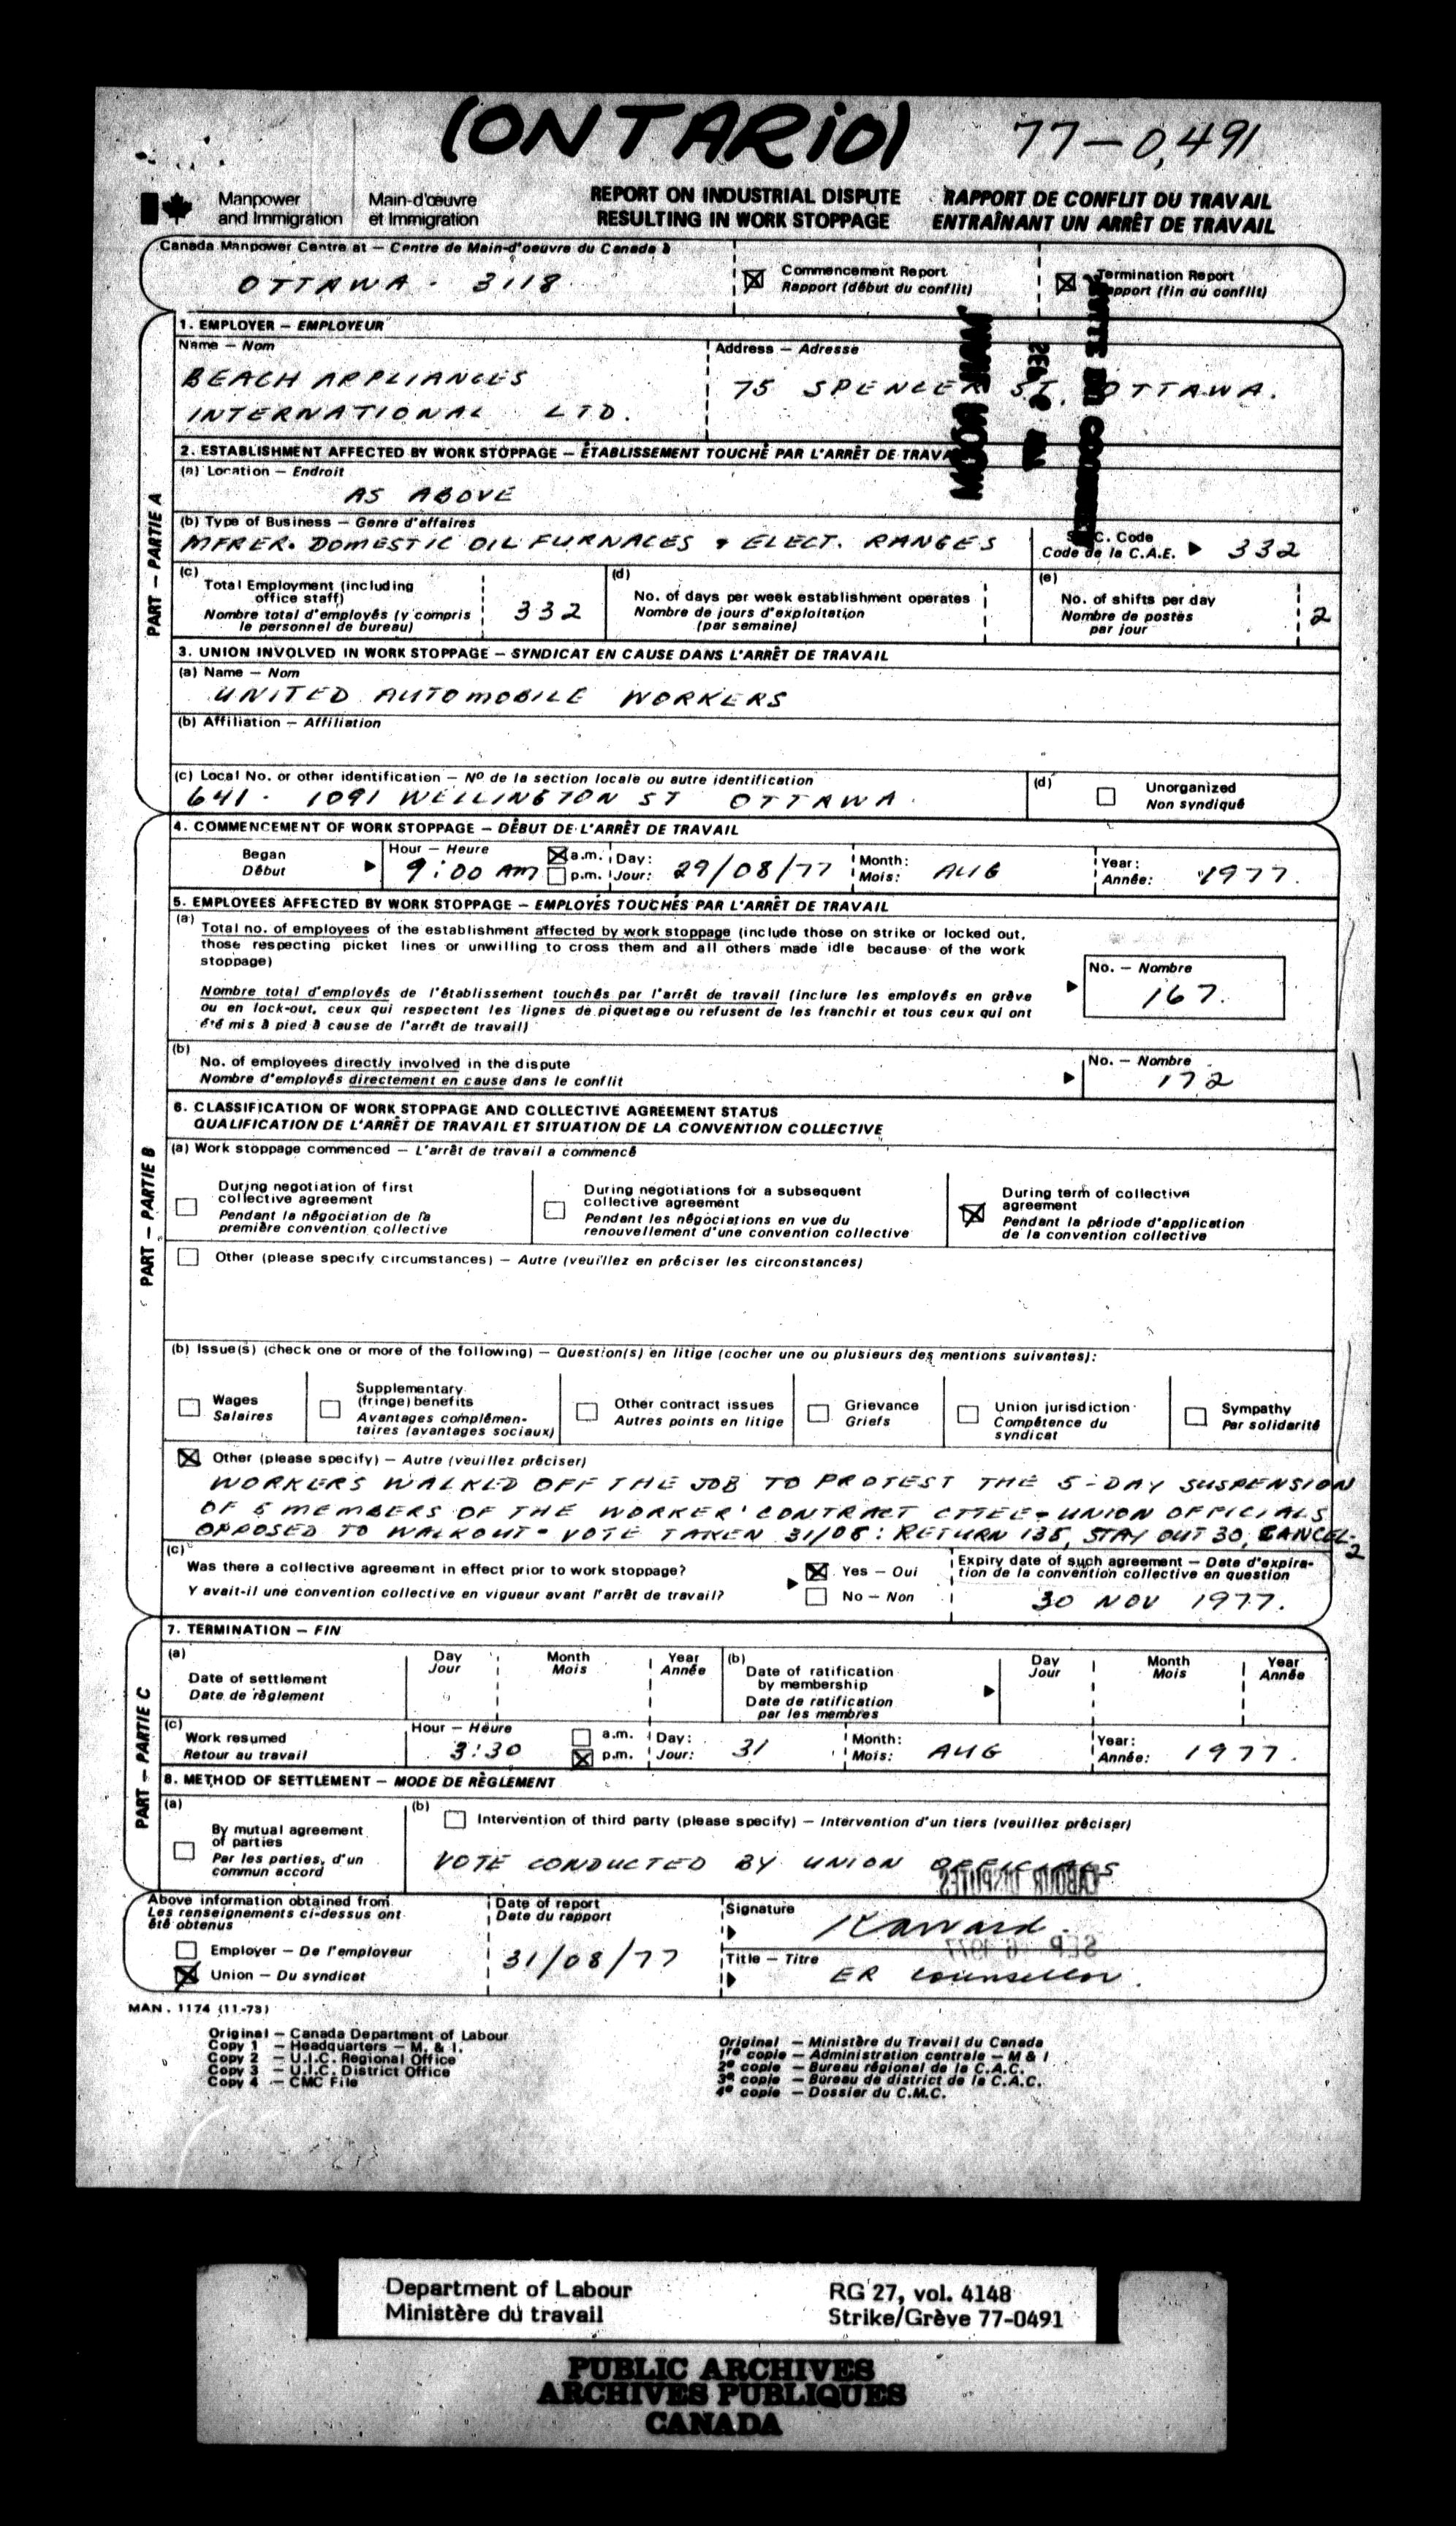 (ONTARIO) 77-0,491
Manpower and Immigration
Main-d'œuvre et Immigration
REPORT ON INDUSTRIAL DISPUTE RESULTING IN WORK STOPPAGE
RAPPORT DE CONFLIT DU TRAVAIL ENTRAÎNANT UN ARRÊT DE TRAVAIL
Canada Manpower Centre at — Centre de Main-d'oeuvre du Canada à
OTTAWA - 3118
Commencement Report
Rapport (début du conflit)
Termination Report
Rapport (fin au conflit)
PART — PARTIE A
1. EMPLOYER — EMPLOYEUR
Name — Nom
BEACH APPLIANCES
INTERNATIONAL LTD.
Address — Adresse
75 SPENCER ST. OTTAWA.
2. ESTABLISHMENT AFFECTED BY WORK STOPPAGE — ÉTABLISSEMENT TOUCHÉ PAR L'ARRÊT DE TRAVA
(a) Location — Endroit
AS ABOVE
(b) Type of Business — Genre d'affaires
MFRER. DOMESTIC OIL FURNACES & ELECT. RANGES
S.I.C. Code
Code de la C.A.E. 332
(c) Total Employment (including
office staff)
Nombre total d'employés (y compris
le personnel de bureau)
332
(d) No. of days per week establishment operates
Nombre de jours d'exploitation
(par semaine)
(e) No. of shifts per day
Nombre de postes
par jour
2
3. UNION INVOLVED IN WORK STOPPAGE — SYNDICAT EN CAUSE DANS L'ARRÊT DE TRAVAIL
(a) Name — Nom
UNITED AUTOMOBILE WORKERS
(b) Affiliation — Affiliation
(c) Local No. or other identification — No de la section locale ou autre identification
641 - 1091 WELLINGTON ST OTTAWA.
(d) Unorganized
Non syndiqué
PART — PARTIE B
4. COMMENCEMENT OF WORK STOPPAGE — DÉBUT DE L'ARRÊT DE TRAVAIL
Began
Début
Hour — Heure
9:00 AM
a.m.
p.m.
Day:
Jour: 29/08/77
Month:
Mois: AUG
Year:
Année: 1977.
5. EMPLOYEES AFFECTED BY WORK STOPPAGE — EMPLOYÉS TOUCHÉS PAR L'ARRÊT DE TRAVAIL
(a) Total no. of employees of the establishment affected by work stoppage (include those on strike or locked out,
those respecting picket lines or unwilling to cross them and all others made idle because of the work
stoppage)
Nombre total d'employés de l'établissement touchés par l'arrêt de travail (inclure les employés en grève
ou en lock-out, ceux qui respectent les lignes de piquetage ou refusent de les franchir et tous ceux qui ont
été mis à pied à cause de l'arrêt de travail)
No. — Nombre
167.
(b) No. of employees directly involved in the dispute
Nombre d'employés directement en cause dans le conflit
No. — Nombre
172
6. CLASSIFICATION OF WORK STOPPAGE AND COLLECTIVE AGREEMENT STATUS
QUALIFICATION DE L'ARRÊT DE TRAVAIL ET SITUATION DE LA CONVENTION COLLECTIVE
(a) Work stoppage commenced — L'arrêt de travail a commencé
During negotiation of first
collective agreement
Pendant la négociation de la
première convention collective
During negotiations for a subsequent
collective agreement
Pendant les négociations en vue du
renouvellement d'une convention collective
During term of collective
agreement
Pendant la période d'application
de la convention collective
Other (please specify circumstances) — Autre (veuillez en préciser les circonstances)
(b) Issue(s) (check one or more of the following) — Question(s) en litige (cocher une ou plusieurs des mentions suivantes):
Wages
Salaires
Supplementary
(fringe) benefits
Avantages complémen-
taires (avantages sociaux)
Other contract issues
Autres points en litige
Grievance
Griefs
Union jurisdiction
Compétence du
syndicat
Sympathy
Par solidarité
Other (please specify) — Autre (veuillez préciser)
WORKERS WALKED OFF THE JOB TO PROTEST THE 5-DAY SUSPENSION
OF 5 MEMBERS OF THE WORKER' CONTRACT CTTEE - UNION OFFICIALS
OPPOSED TO WALKOUT - VOTE TAKEN 31/08: RETURN 135, STAY OUT 30, CANCEL-2
(c) Was there a collective agreement in effect prior to work stoppage?
Y avait-il une convention collective en vigueur avant l'arrêt de travail?
Yes — Oui
No — Non
Expiry date of such agreement — Date d'expira-
tion de la convention collective en question
30 NOV 1977.
PART — PARTIE C
7. TERMINATION — FIN
(a) Date of settlement
Date de règlement
Day
Jour
Month
Mois
Year
Année
(b) Date of ratification
by membership
Date de ratification
par les membres
Day
Jour
Month
Mois
Year
Année
(c) Work resumed
Retour au travail
Hour — Heure
3:30
a.m.
p.m.
Day:
Jour: 31
Month:
Mois: AUG
Year:
Année: 1977.
8. METHOD OF SETTLEMENT — MODE DE RÈGLEMENT
(a) By mutual agreement
of parties
Par les parties, d'un
commun accord
(b) Intervention of third party (please specify) — Intervention d'un tiers (veuillez préciser)
VOTE CONDUCTED BY UNION OFFICIALS
LABOUR DISPUTES
Above information obtained from
Les renseignements ci-dessus ont
été obtenus
Employer — De l'employeur
Union — Du syndicat
Date of report
Date du rapport
31/08/77
Signature
SEP 6 1977
Title — Titre
ER Counsellor.
MAN. 1174 (11-73)
Original — Canada Department of Labour
Copy 1 — Headquarters — M. & I.
Copy 2 — U.I.C. Regional Office
Copy 3 — U.I.C. District Office
Copy 4 — CMC File
Original — Ministère du Travail du Canada
1re copie — Administration centrale — M & I
2e copie — Bureau régional de la C.A.C.
3e copie — Bureau de district de la C.A.C.
4e copie — Dossier du C.M.C.
Department of Labour
Ministère du travail
RG 27, vol. 4148
Strike/Grève 77-0491
PUBLIC ARCHIVES
ARCHIVES PUBLIQUES
CANADA